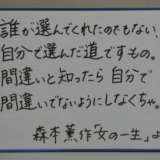 誰が選んでくれたのでもない、
自分で選んだ道ですもの。
間違いと知ったら 自分で
間違いでないようにしなくちゃ。
森本薫作「女の一生」よ